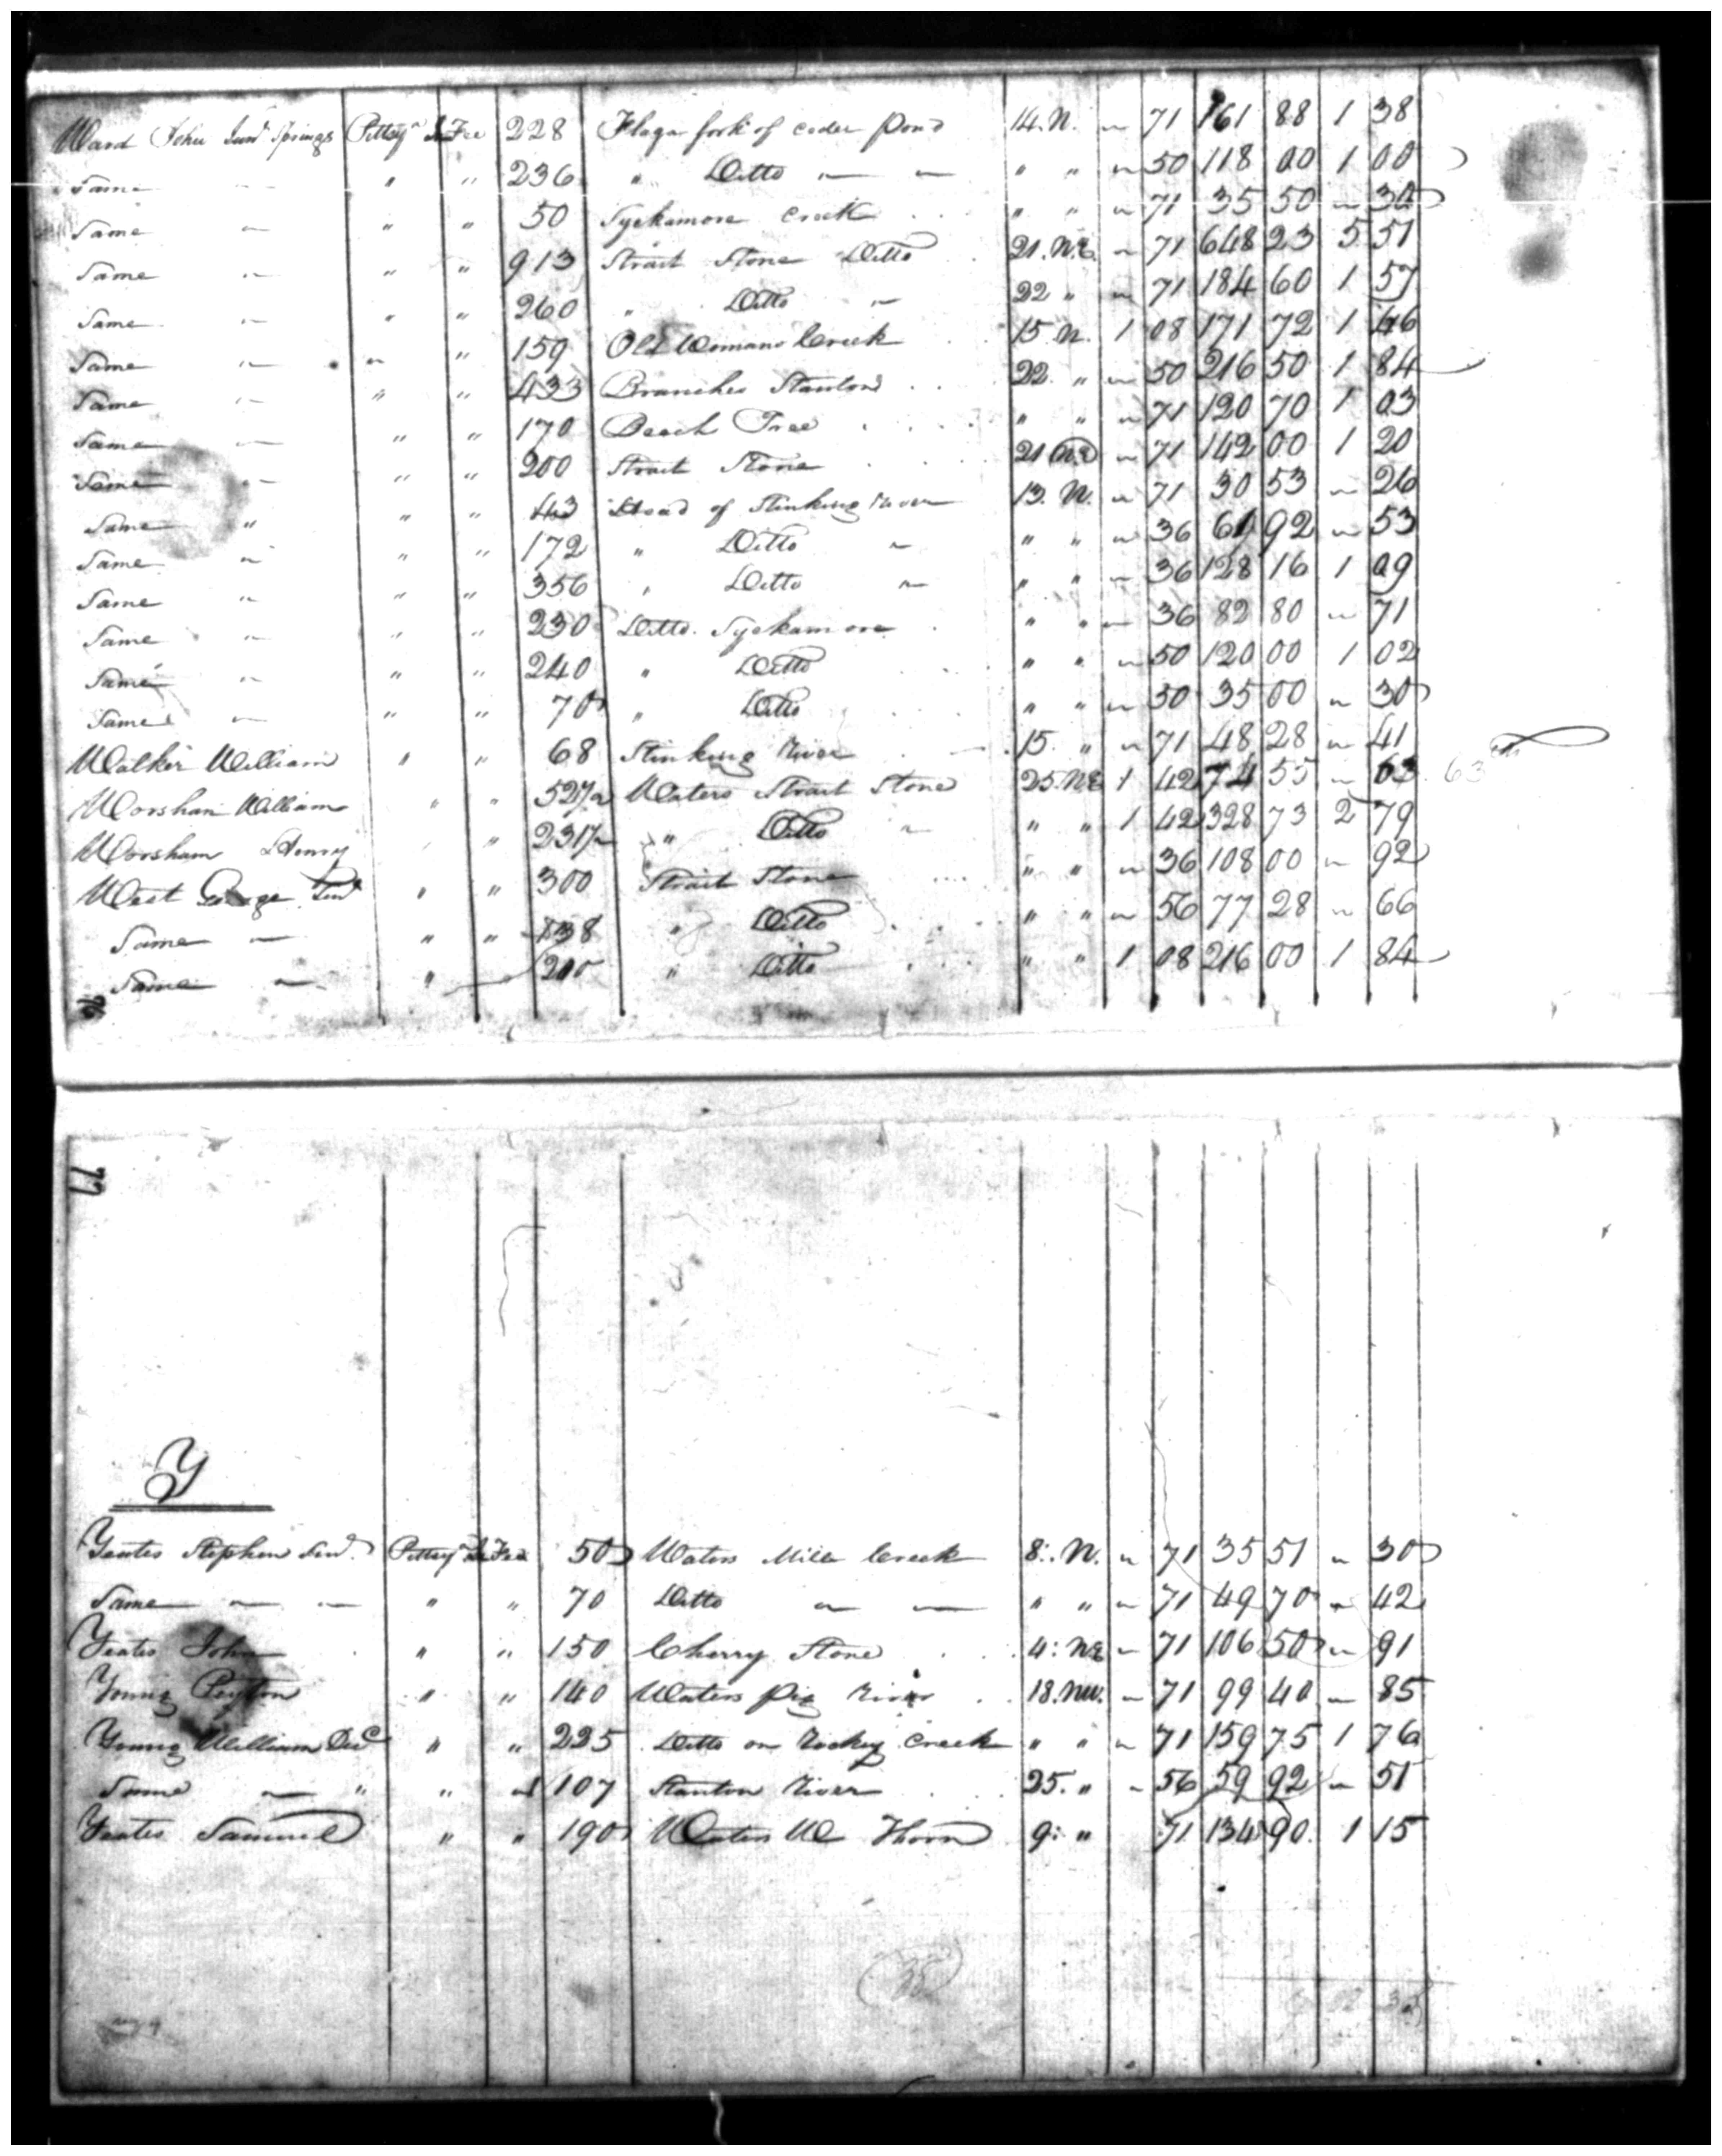 Ward John Senr Springs Pittsya In Fee 228 Flaga fork of ceder pond 14. N. " 71 161 88 1 38
Same " " " 236 " Ditto " " " " 50 118 00 1 00
Same " " " 50 Syckamore Creek " " " 71 35 50 " 30
Same " " " 913 Strait Stone Ditto 21. N.E. " 71 648 23 5 51
Same " " " 260 " Ditto " 22 " " 71 184 60 1 57
Same " " " 159 Old Womans Creek 15 N. 1 08 171 72 1 46
Same " " " 433 Branches Stanton 22. " " 50 216 50 1 84
Same " " " 170 Beach Tree " " " 71 120 70 1 03
Same " " " 200 Strait Stone 21 N.E " 71 142 00 1 20
Same " " " 43 Head of Stinking River 13. N. " 71 30 53 " 26
Same " " " 172 " Ditto " " " " 36 61 92 " 53
Same " " " 356 " Ditto " " " " 36 128 16 1 09
Same " " " 230 Ditto Syckamore " " " 36 82 80 " 71
Same " " " 240 " Ditto " " " 50 120 00 1 02
Same " " " 70 " Ditto " " " 50 35 00 " 30
Walker William " " 68 Stinking River 15. " " 71 48 28 " 41
Worsham William " " 52 1/2 Waters Strait Stone 25. NE 1 42 74 55 " 63 63
Worsham Henry " " 231 1/2 " Ditto " " " 1 42 328 73 2 79
West George Senr " " 300 Strait Stone " " " 36 108 00 " 92
Same " " " 138 " Ditto " " " 56 77 28 " 66
Same " " 200 " Ditto " " 1 08 216 00 1 84
76
77
Y
Yeates Stephen Senr. Pittsya In Fee 50 Waters Mill Creek 8. N. " 71 35 51 " 30
Same " " " " 70 Ditto " " " " " 71 49 70 " 42
Yeates John " " 150 Cherry Stone 4. NE " 71 106 50 " 91
Young Peyton " " 140 Waters Pig River 18. NW. " 71 99 40 " 85
Young William Decd " " 225 Ditto on Rockey Creek " " " 71 159 75 1 76
Same " " " " 107 Stanton River 25. " " 56 59 92 " 51
Yeates Samuel " " 190 Waters W Thorn 9. " 71 134 90 1 15
(35)